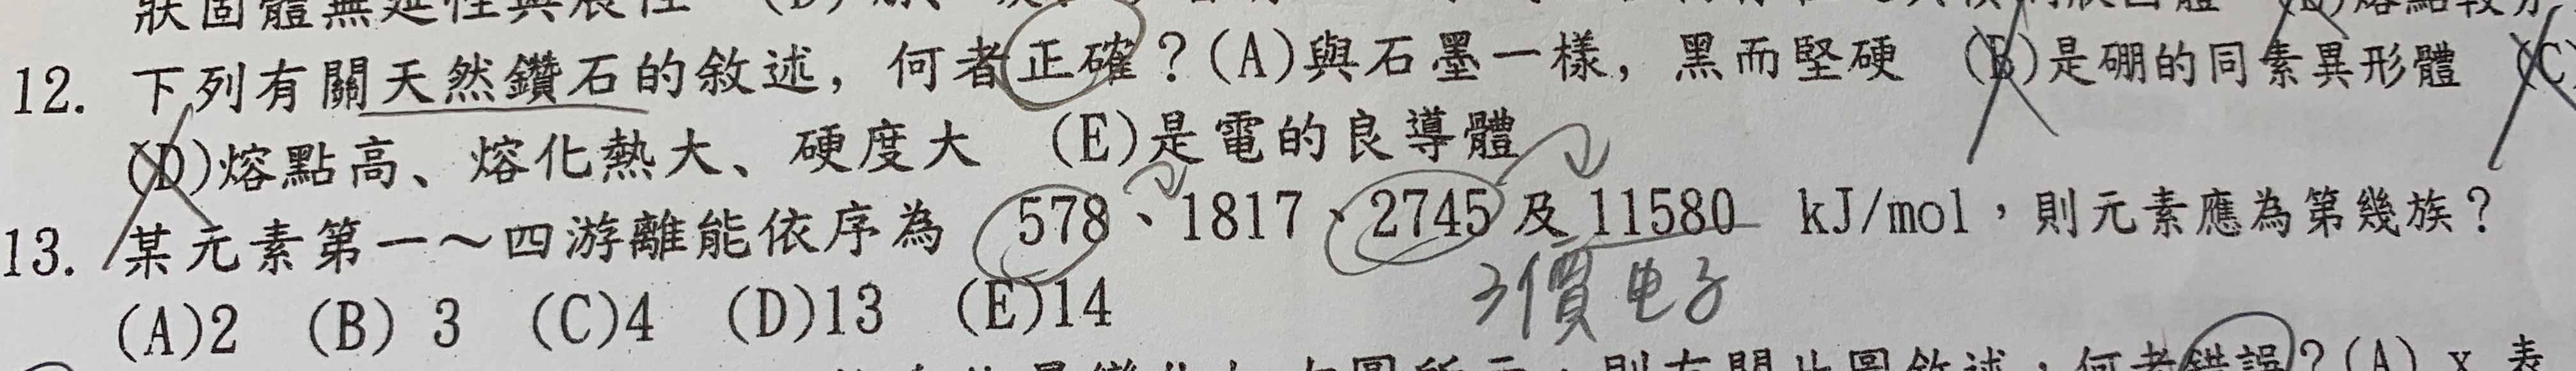 狀固體無延性與展性
12. 下列有關天然鑽石的敘述，何者正確？(A)與石墨一樣，黑而堅硬 (B)是硼的同素異形體 (C)
(D)熔點高、熔化熱大、硬度大 (E)是電的良導體
13. 某元素第一～四游離能依序為 578、1817、2745及11580 kJ/mol，則元素應為第幾族？
3價电子
(A)2 (B) 3 (C)4 (D)13 (E)14
何者錯誤？(A) x 表